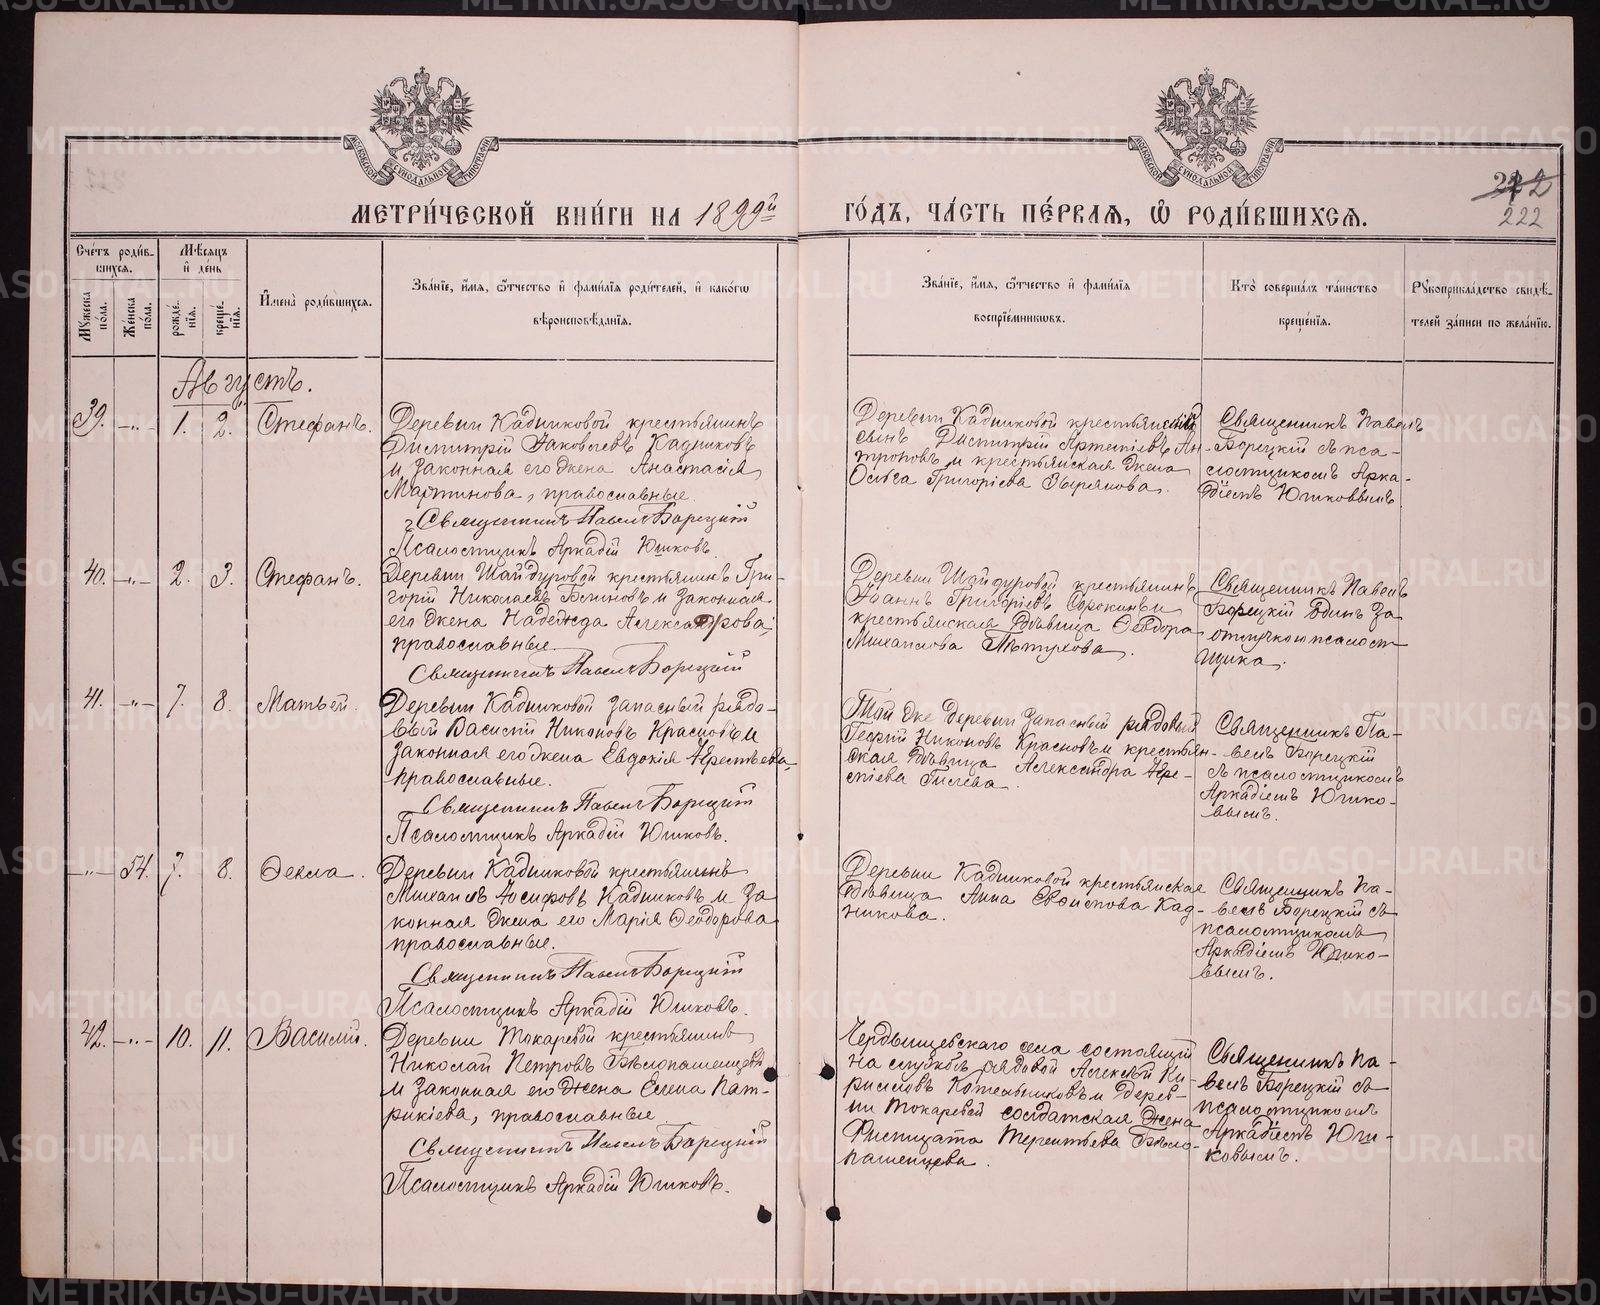 МЕТРИ́ЧЕСКОЙ КНИ́ГИ НА 1899й
ГО́ДЪ, ЧА́СТЬ ПЕ́РВАЯ, Ѿ РОДИ́ВШИХСЯ.
212
222
МОСКОВСКОЙ СѴНОДАЛЬНОЙ ТИПОГРАФІИ
МОСКОВСКОЙ СѴНОДАЛЬНОЙ ТИПОГРАФІИ
Сче́тъ роди́в-
шихся.
Му́жеска по́ла.
Же́нска по́ла.
Мѣ́сяцъ
и҆ де́нь
рожде́-
нїя.
креще́-
нїя.
И҆мена̀ роди́вшихся.
Зва́нїе, и҆́мя, ѻ҆́тчество и҆ фами́лїя роди́телей, и҆ како́гѡ
вѣроисповѣ́данїя.
Зва́нїе, и҆́мя, ѻ҆́тчество и҆ фами́лїя
воспрїе́мникѡвъ.
Кто̀ соверша́лъ та́инство
креще́нїя.
Рꙋкоприкла́дство свидѣ́-
телей за́писи по жела́нїю.
Августъ.
39. -„- 1. 2. Стефанъ.
Деревни Кадниковой крестьянинъ
Димитрій Іаковлевъ Кадниковъ
и законная его жена Анастасія
Мартинова, православные.
Священникъ Павелъ Борецкій
Псаломщикъ Аркадій Юшковъ.
Деревни Кадниковой крестьянскій
сынъ Димитрій Артеміевъ Ан-
троповъ и крестьянская жена
Ольга Григоріева Зырянова.
Священникъ Павелъ
Борецкій съ пса-
ломщикомъ Арка-
діемъ Юшковымъ
40. -„- 2. 3. Стефанъ.
Деревни Шайдуровой крестьянинъ Гри-
горій Николаевъ Блиновъ и законная
его жена Надежда Александрова,
православные.
Священникъ Павелъ Борецкій
Деревни Шайдуровой крестьянинъ
Іоаннъ Григоріевъ Сорокинъ и
крестьянская дѣвица Ѳеодора
Михаилова Пѣтухова.
Священникъ Павелъ
Борецкій Одинъ за
отлучкою псалом-
щика.
41. -„- 7. 8. Матѳей.
Деревни Кадниковой запасный рядо-
вый Василій Никоновъ Красновъ и
законная его жена Евдокія
православные.
Священникъ Павелъ Борецкій
Псаломщикъ Аркадій Юшковъ.
Той же деревни запасный рядовый
Георгій Никоновъ Красновъ и крестьян-
ская дѣвица Александра
Гилева.
Священникъ Па-
велъ Борецкій
съ псаломщикомъ
Аркадіемъ Юшко-
вымъ.
-„- 54. 7. 8. Ѳекла.
Деревни Кадниковой крестьянинъ
Михаилъ Іосифовъ Кадниковъ и за
конная жена его Марія Ѳеодорова
православные.
Священникъ Павелъ Борецкій
Псаломщикъ Аркадій Юшковъ.
Деревни Кадниковой крестьянская
дѣвица Анна Кад-
никова.
Священникъ Па-
велъ Борецкій съ
псаломщикомъ
Аркадіемъ Юшко-
вымъ.
42. -„- 10. 11. Василій.
Деревни Токаревой крестьянинъ
Николай Петровъ Бѣлопашенцевъ
и законная его жена Елена Пат-
рикіева, православные
Священникъ Павелъ Борецкій
Псаломщикъ Аркадій Юшковъ.
села состоящій
на службѣ рядовой Алексѣй Ки-
рилловъ Котельниковъ и дерев-
ни Токаревой солдатская жена
Терентьева Бѣло-
пашенцева.
Священникъ Па-
велъ Борецкій съ
псаломщикомъ
Аркадіемъ Юш-
ковымъ.
METRIKI.GASO-URAL.RU